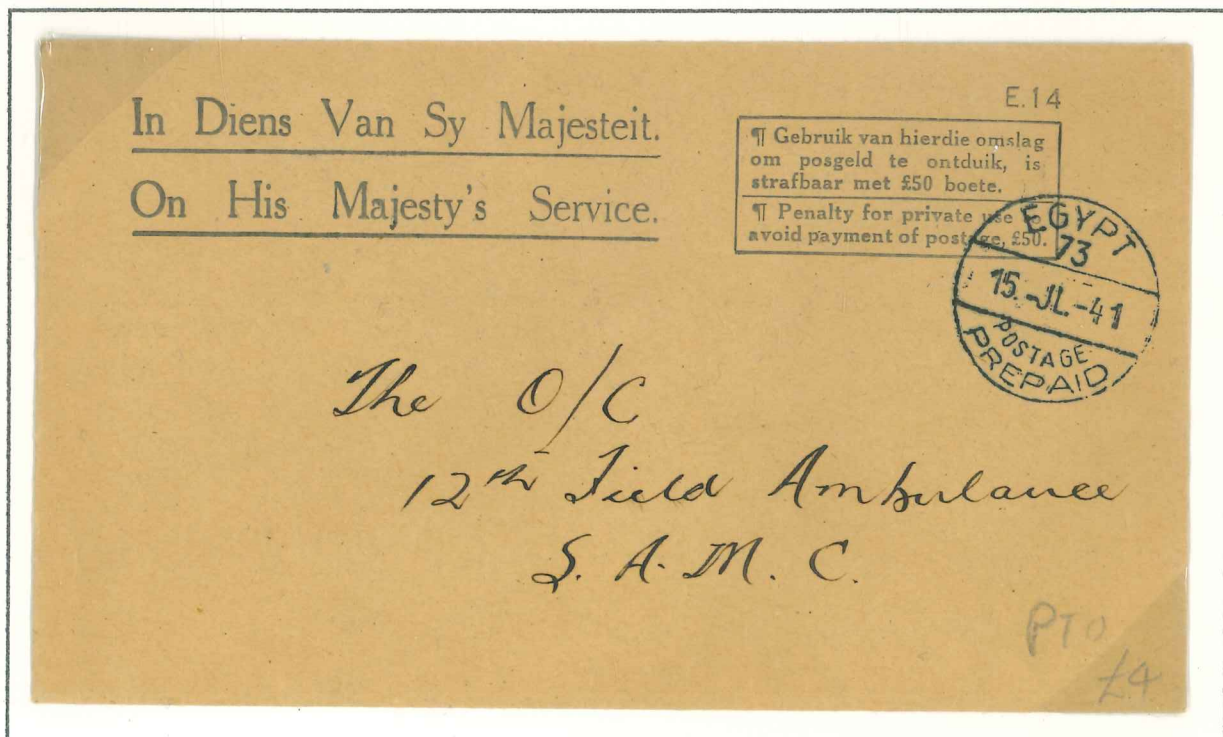 In Diens Van Sy Majesteit.
On His Majesty's Service.
E.14
¶ Gebruik van hierdie omslag
om posgeld te ontduik, is
strafbaar met £50 boete.
¶ Penalty for private use to
avoid payment of postage, £50.
EGYPT
73
15.-JL.-41
POSTAGE
PREPAID
The O/C
12th Field Ambulance
S. A. M. C.
PTO
£4